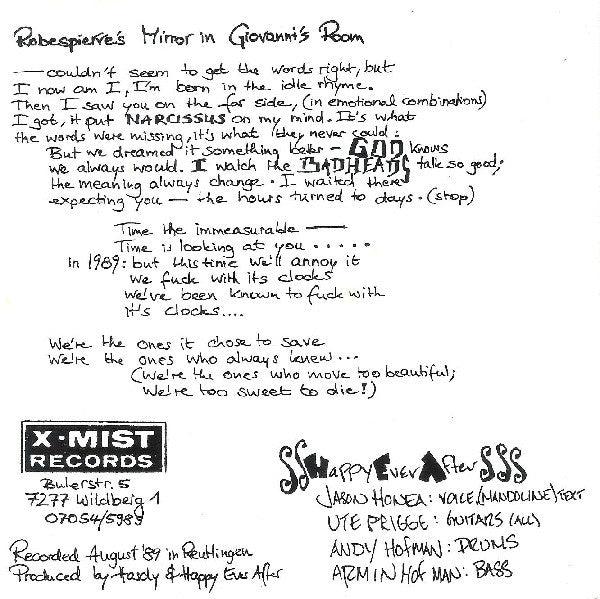 Robespierre's Mirror in Giovanni's Room
— couldn't seem to get the words right, but
I now am I, I'm born in the idle rhyme.
Then I saw you on the far side, (in emotional combinations)
I got, it put NARCISSUS on my mind. It's what
the words were missing, it's what they never could:
But we dreamed it something better – GOD knows
we always would. I watch the BADHEADS talk so good;
the meaning always change. I waited there
expecting you — the hours turned to days. (stop)
Time the immeasurable —
Time is looking at you .....
in 1989: but this time we'll annoy it
we fuck with its clocks
we've been known to fuck with
it's clocks....
We're the ones it chose to save
We're the ones who always knew...
(We're the ones who move too beautiful;
We're too sweet to die!)
X·MIST
RECORDS
Bulerstr. 5
7277 Wildberg 1
07054/5989
Recorded August '89 in Reutlingen
Produced by Hardy & Happy Ever After
SSHappy Ever After SSS
JASON HONEA: VOICE, (MANDOLINE) TEXT
UTE PRIGGE: GUITARS (ALL)
ANDY HOFMAN: DRUMS
ARMIN HOFMAN: BASS